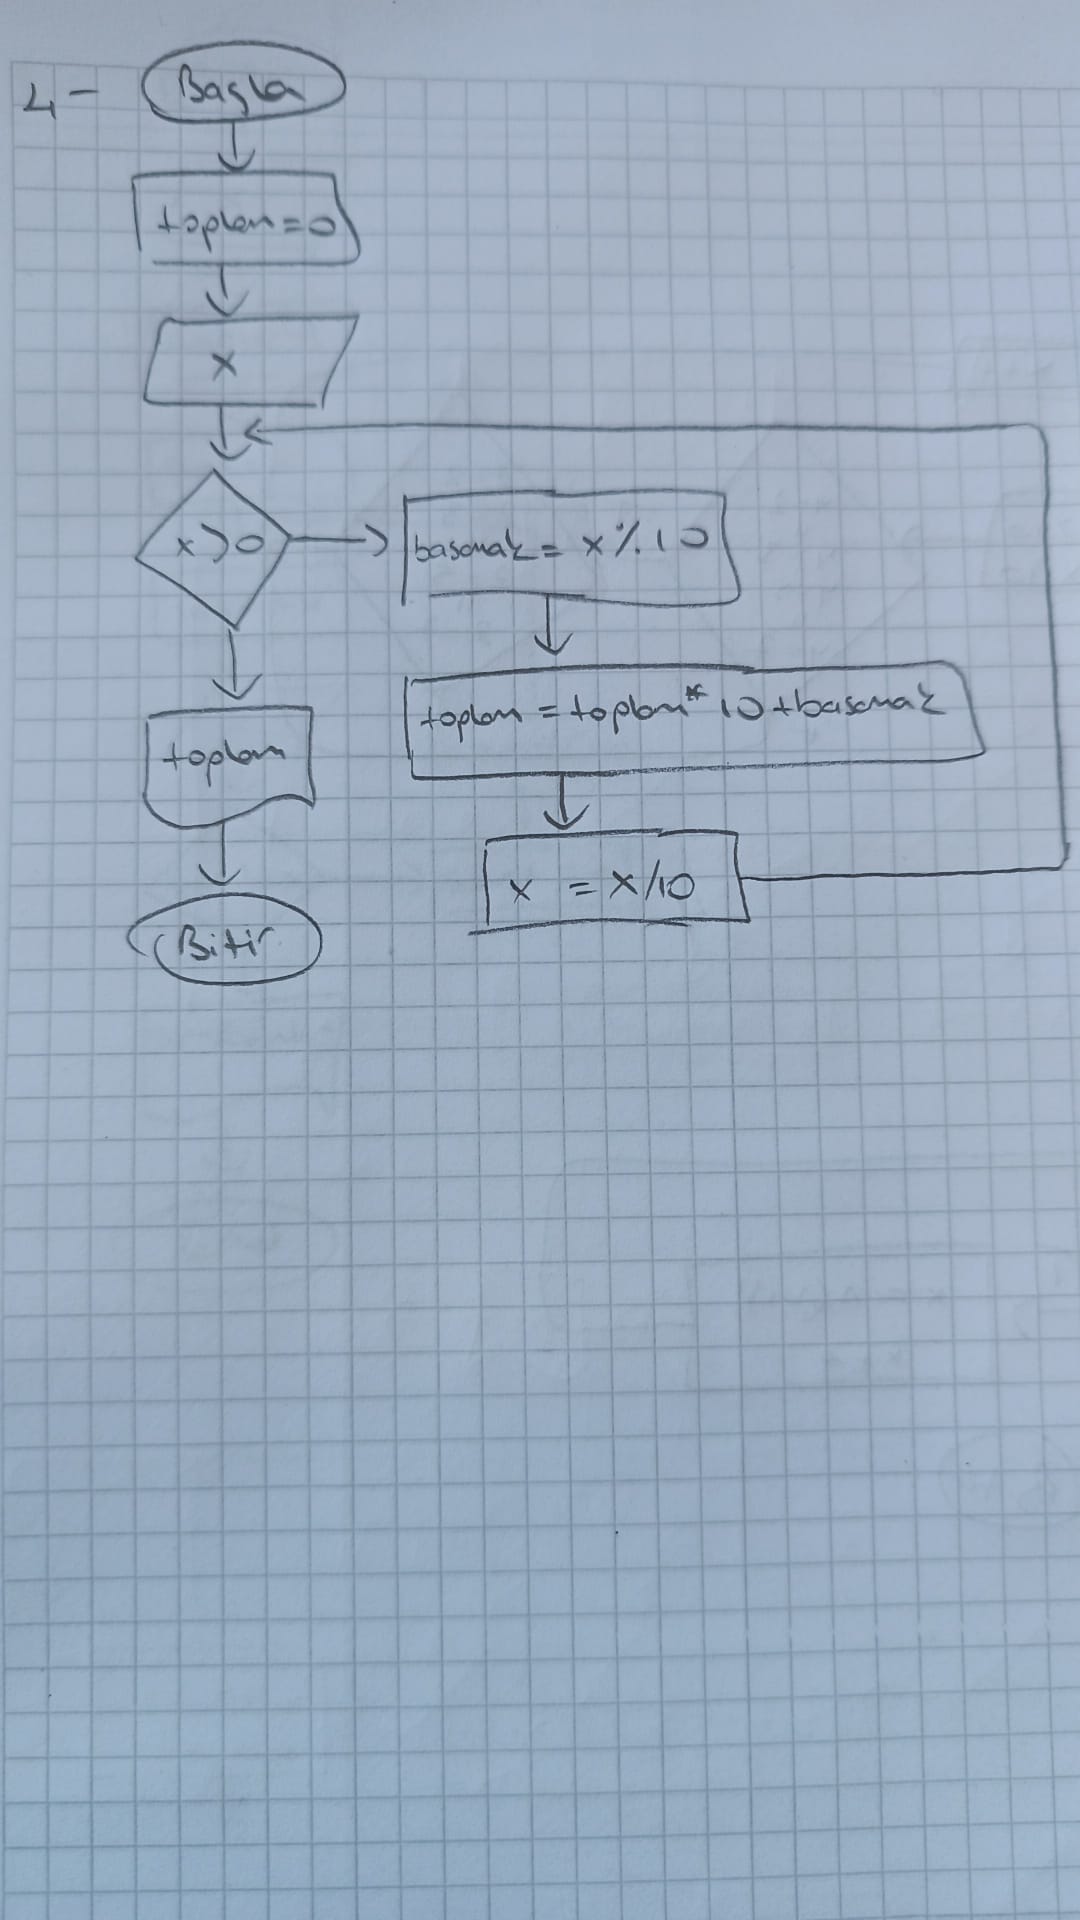 4- Başla
toplam=0
x
x>0
basamak = x%10
toplam = toplam*10+basamak
x = x/10
toplam
Bitir